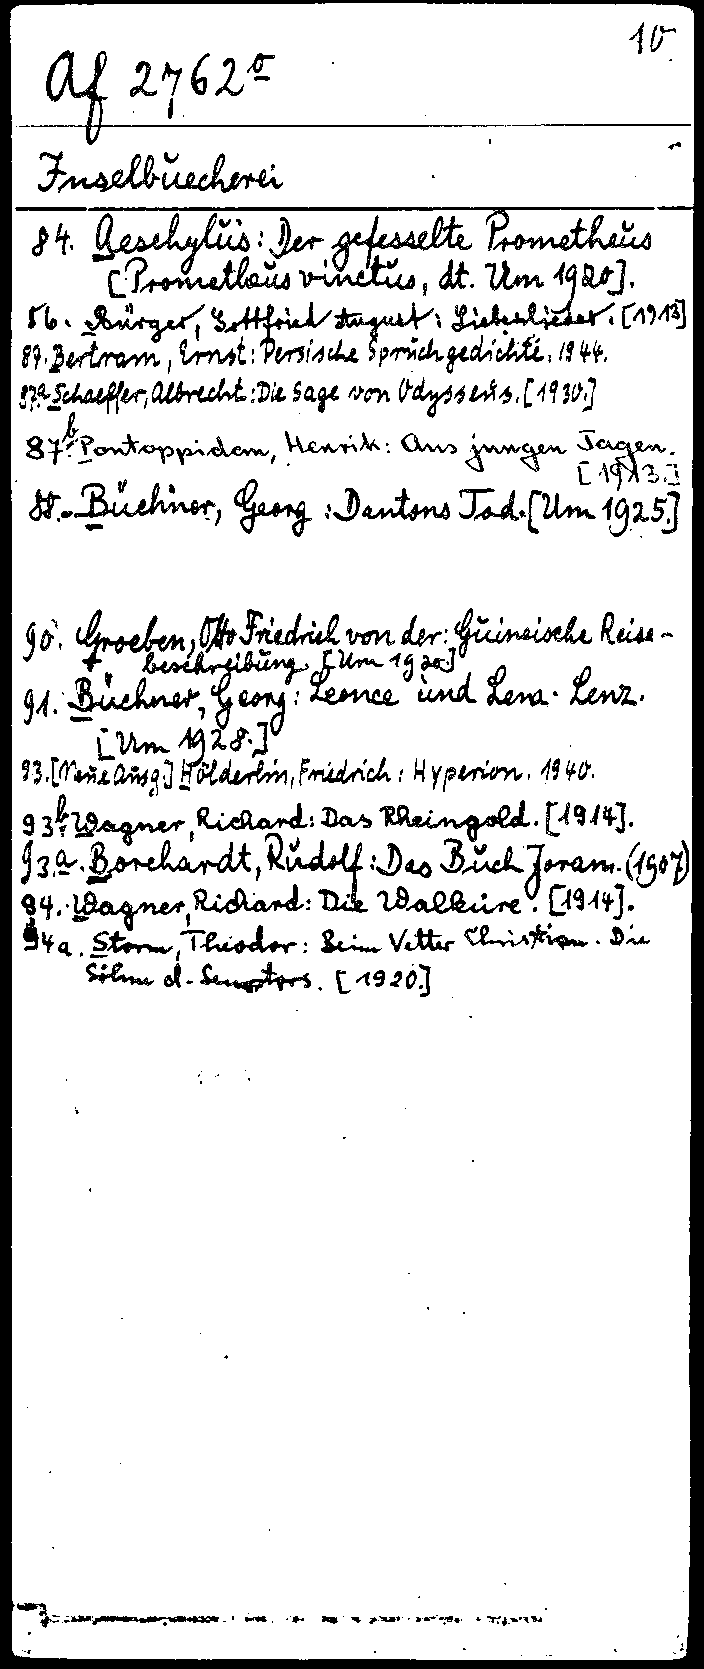 10
Af 2762 o
Inselbuecherei
84. Aeschylus: Der gefesselte Prometheus
[Prometheus vinctus, dt. Um 1920].
86. Bürger, Gottfried August: Liebeslieder. [1913]
87. Bertram, Ernst: Persische Spruchgedichte. 1944.
87a Schaeffer, Albrecht: Die Sage von Odysseus. [1930.]
87b Pontoppidan, Henrik: Aus jungen Tagen.
[1913.]
88. Büchner, Georg: Dantons Tod. [Um 1925.]
90. Groeben, Otto Friedrich von der: Guineische Reise-
beschreibung. [Um 1920.]
91. Büchner, Georg: Leonce und Lena. Lenz.
[Um 1928.]
93. [Neue Ausg.] Hölderlin, Friedrich: Hyperion. 1940.
93b. Wagner, Richard: Das Rheingold. [1914].
93a. Borchardt, Rudolf: Das Buch Joram. (1907)
94. Wagner, Richard: Die Walküre. [1914].
94a. Storm, Theodor: Beim Vetter Christian. Die
Söhne d. Senators. [1920.]